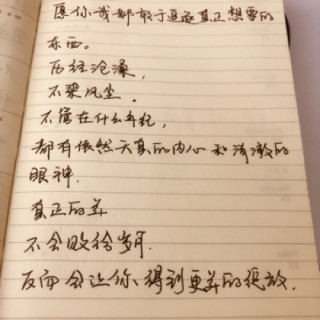 愿你我都敢于追逐真正想要的
东西。
历经沧桑，
不染风尘。
不管在什么年纪，
都有依然天真的内心和清澈的
眼神.
真正的美
不会败给岁月.
反而会让你得到更美的绽放.